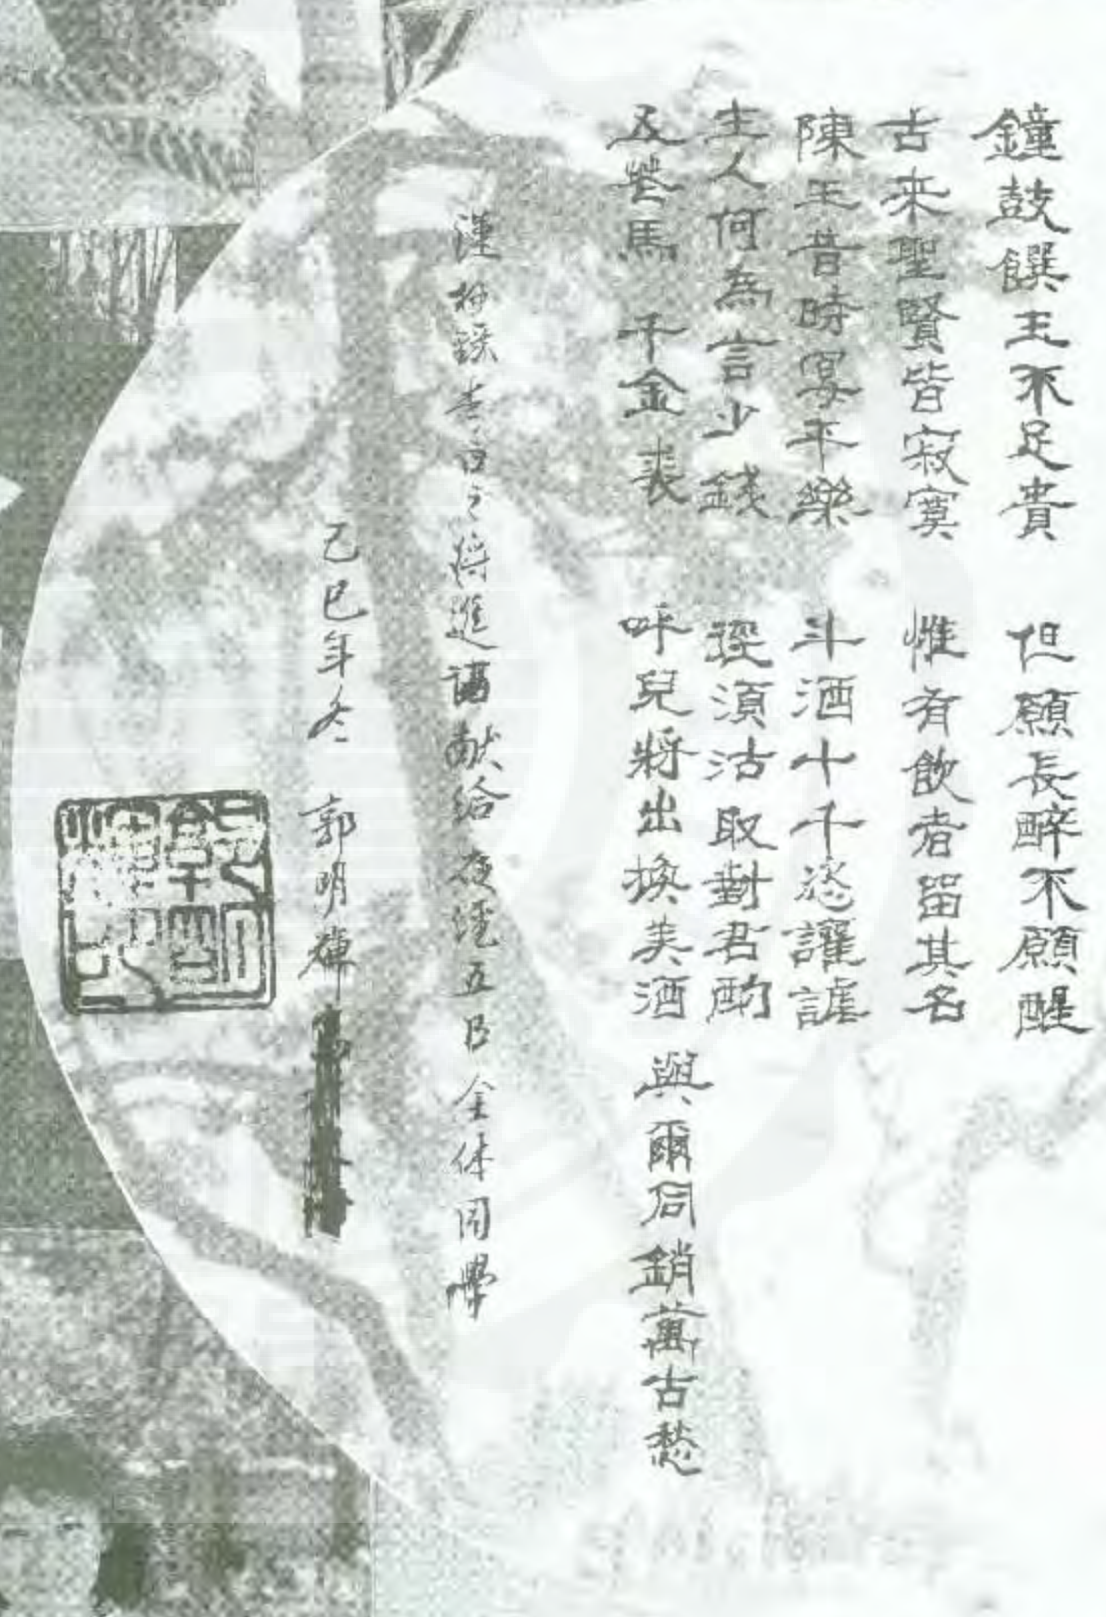 鐘鼓饌玉不足貴　但願長醉不願醒
古來聖賢皆寂寞　惟有飲者留其名
陳王昔時宴平樂　斗酒十千恣讙謔
主人何為言少錢　徑須沽取對君酌
五花馬　千金裘　呼兒將出換美酒　與爾同銷萬古愁
謹抄錄李白之將進酒献給夜經五B全体同學
己巳年冬　郭明輝